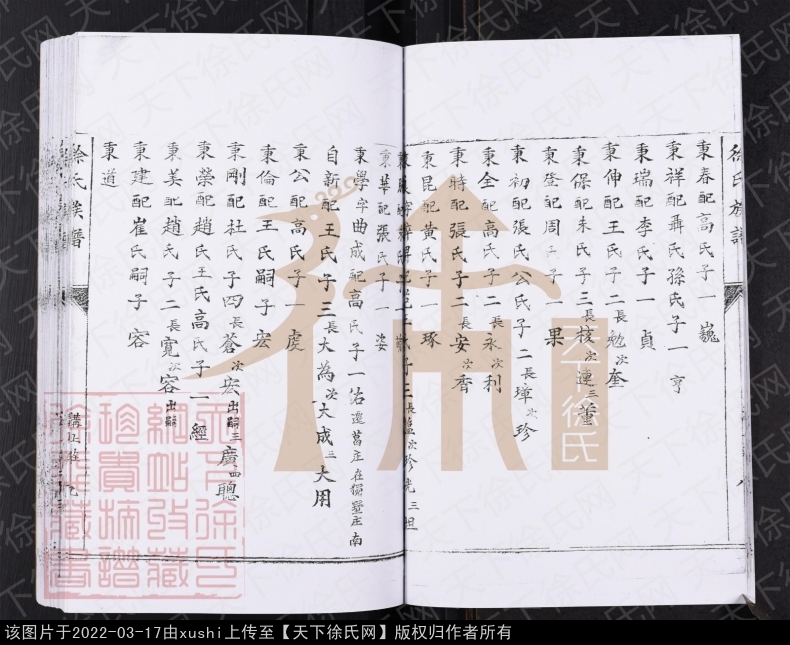 徐氏族譜
秉春配高氏子一巍
秉祥配聶氏孫氏子一亨
秉瑞配李氏子一貞
秉伸配王氏子二長勉次奎
秉保配朱氏子三長枝次連三董
秉登配周氏子一果
秉初配張氏公氏子二長璋次珍
秉全配高氏子二長永次利
秉時配張氏子二長安次香
秉昆配黃氏子一琢
秉華配張氏子一姿
秉學字曲成配高氏子一佑遷莒庄在獨墅庄南
自新配王氏子三長大為次大成三大用
秉公配高氏子一虔
秉倫配王氏嗣子宏
秉剛配杜氏子四長蒼次宏出嗣三廣四聰
秉榮配趙氏王氏高氏子一經
秉美配趙氏子二長寬次容出嗣
秉建配崔氏嗣子容
秉道
徐氏族譜
天下徐氏
天下徐氏
紹帖收藏
珍貴抽譜
该图片于2022-03-17由xushi上传至【天下徐氏网】版权归作者所有